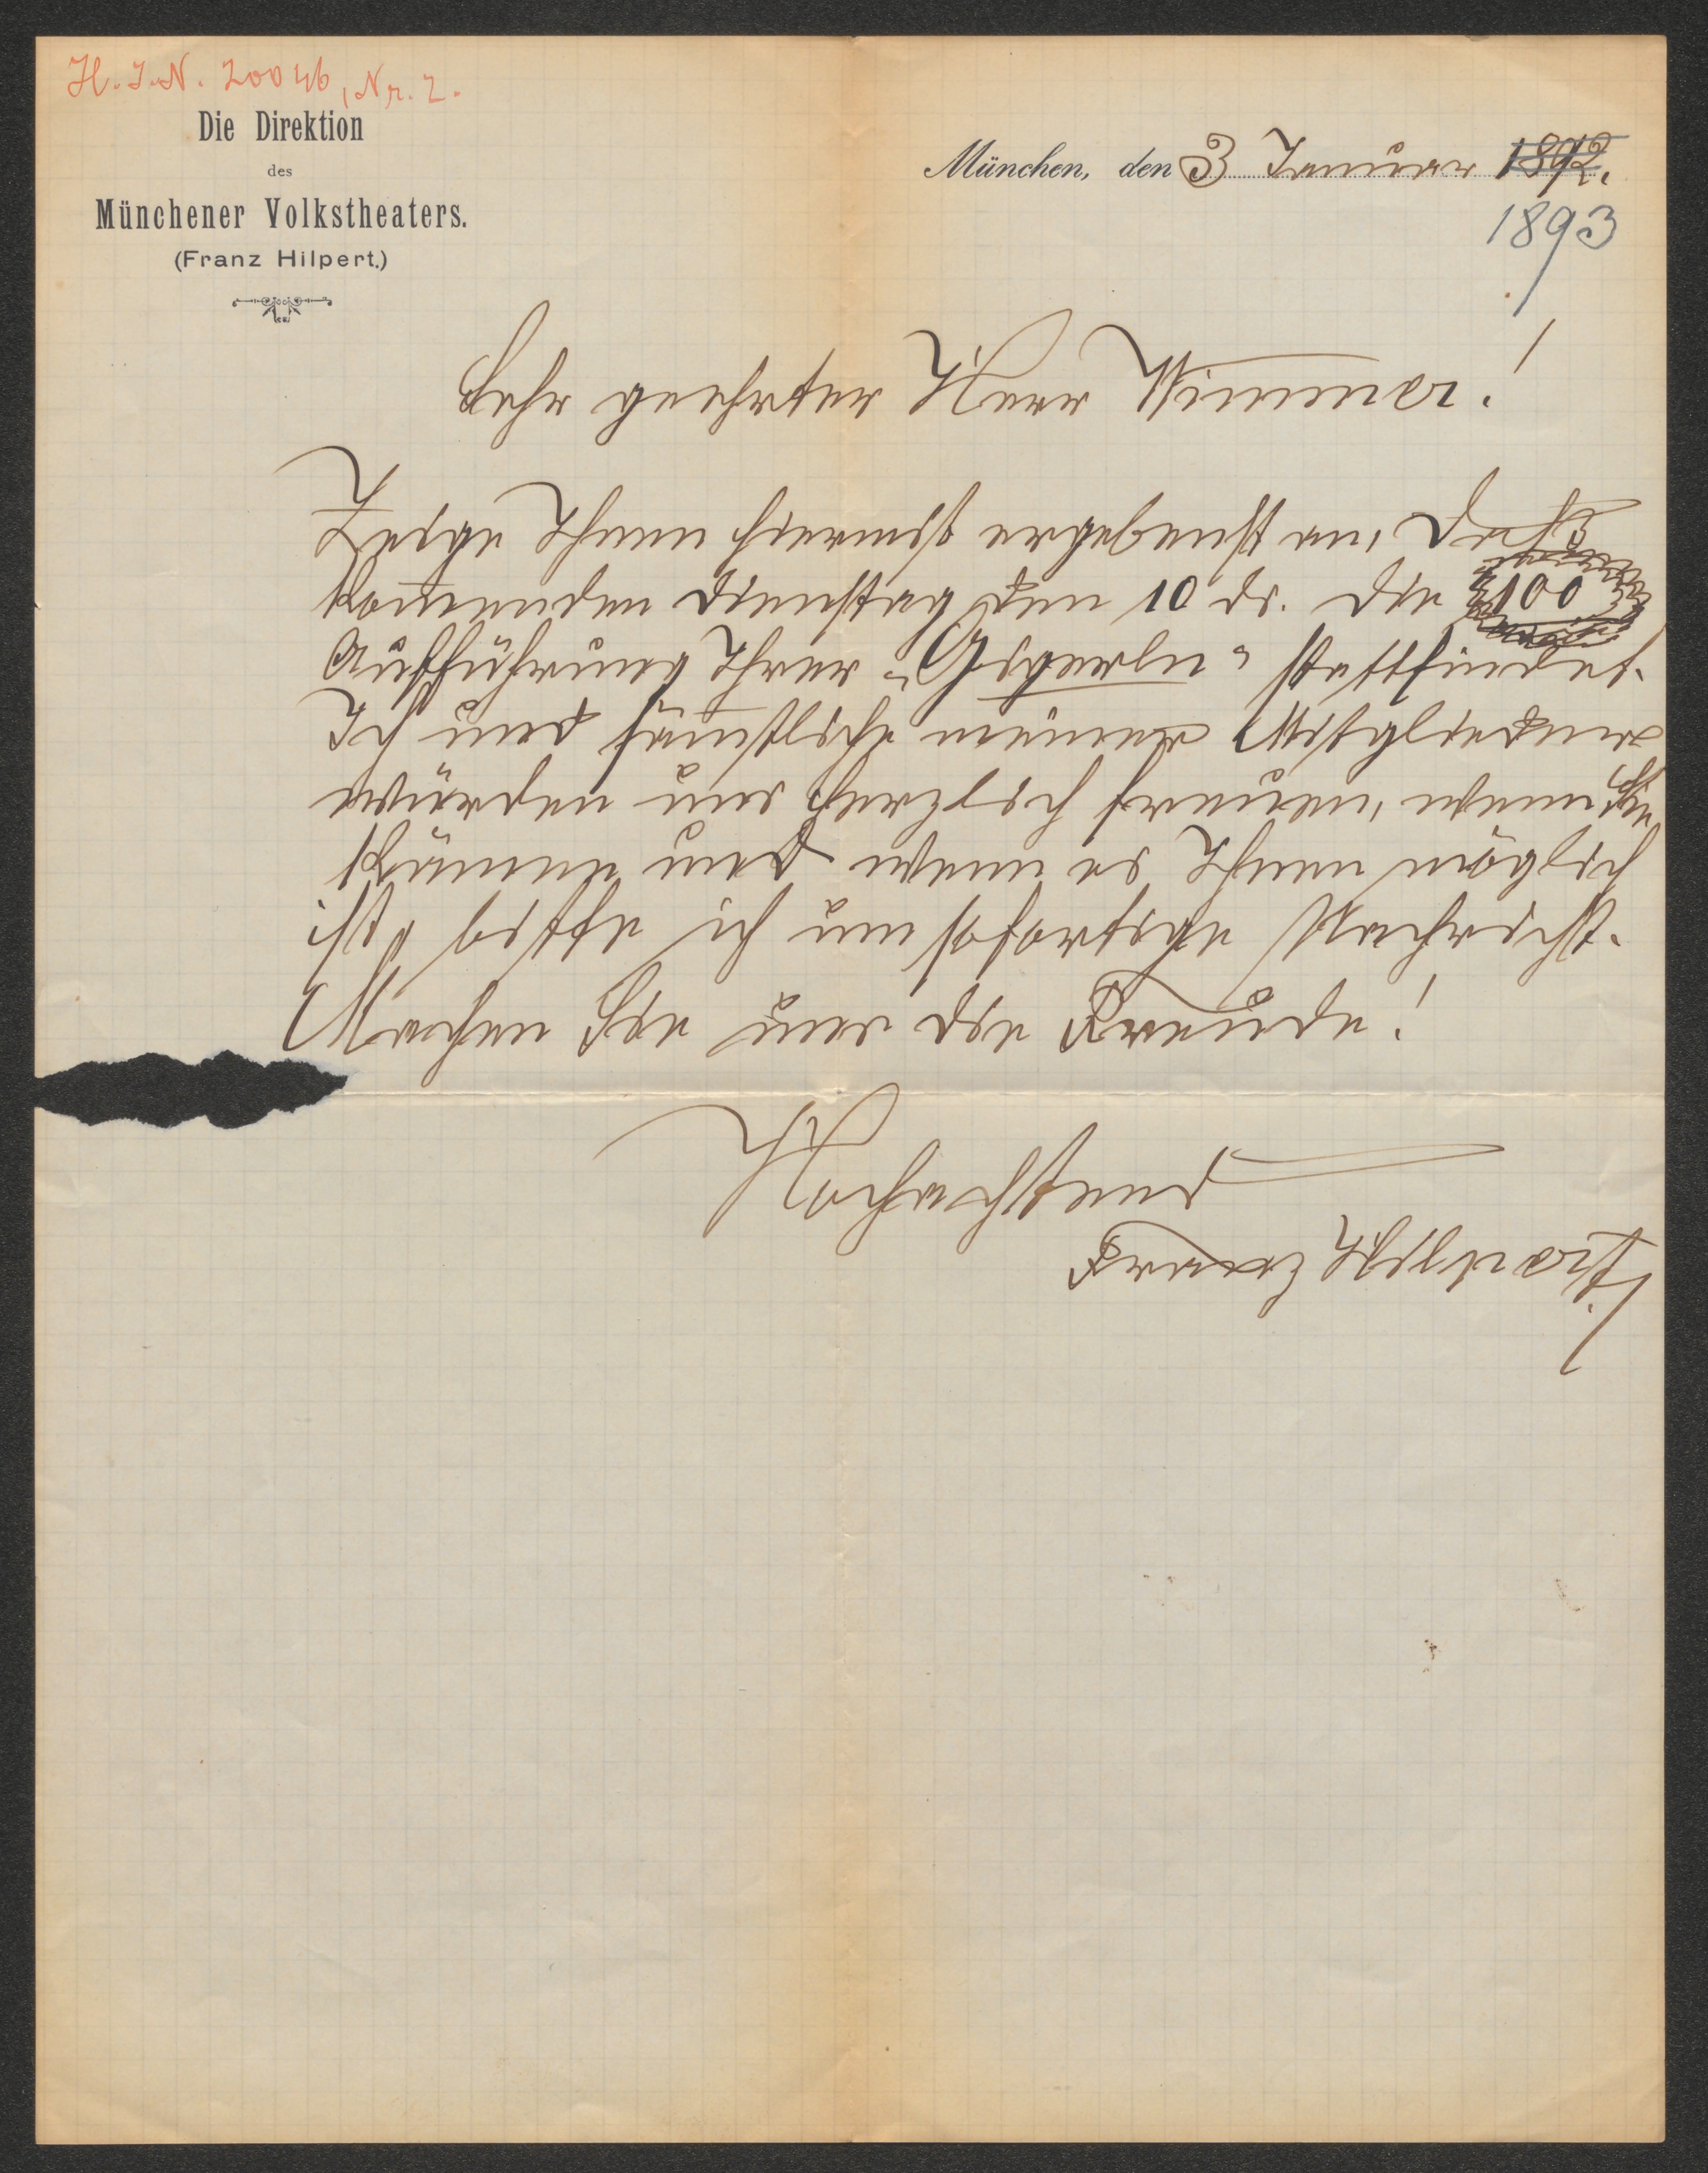 H. I. N. 20046, Nr. 2.
Die Direktion
des
Münchener Volkstheaters.
(Franz Hilpert.)
München, den 3 Januar 1892.
1893
Sehr geehrter Herr Wimmer!
Zeige Ihnen hiermit ergebenst an, daß
kommenden Dienstag den 10 ds. die 100
Aufführung Ihrer „Gigerln“ stattfindet.
Ich und sämtliche meiner Mitglieder
würden uns herzlich freuen, wenn Sie
kämen und wenn es Ihnen möglich
ist, bitte ich um sofortige Nachricht.
Machen Sie uns die Freude!
Hochachtend
Franz Hilpert